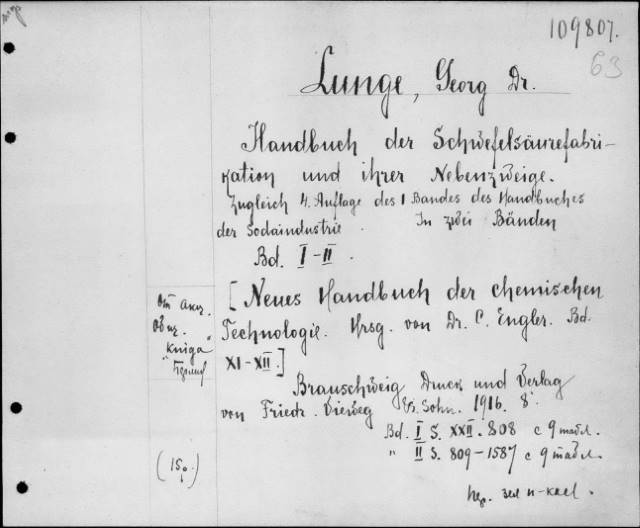 109807.
63
Lunge, Georg Dr.
Handbuch der Schwefelsäurefabri-
kation und ihrer Nebenzweige.
Zugleich 4. Auflage des I Bandes des Handbuches
der Sodaindustrie. In zwei Bänden
Bd. I-II.
[Neues Handbuch der chemischen
Technologie. Hrsg. von Dr. C. Engler. Bd.
XI-XII.]
Brauschweig Druck und Verlag
von Friedr. Vieweg & Sohn. 1916. 8°.
Bd. I S. XXII. 808 с 9 табл.
" II S. 809-1587 с 9 табл.
От Акц.
Общ.
"Kniga"
(15,)